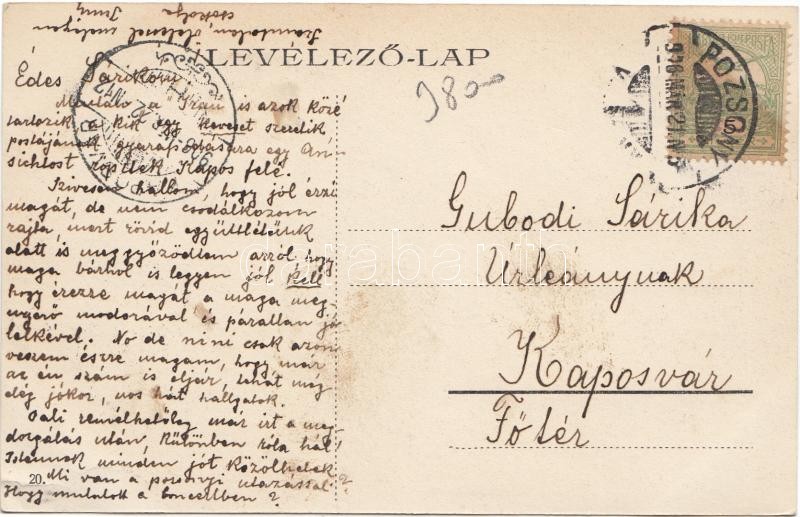 Számtalan ölelessel melegen
csókolja Juny
LEVÉLEZŐ-LAP
Édes Sárikám
Miután a Iran is azok közé
tartozik a kik egy keveset szeretik
postájának gyarapodására egy An-
sichtost röpítek Kapos felé.
Szivesen hallom, hogy jól érzi
magát, de nem csodálkozom
rajta, mert rövid együttlétünk
alatt is meggyőződtem arról, hogy
maga bárhol is legyen jól kell
hogy érezze magát a maga meg-
nyerő modorával és páratlan jó
lelkével. No de nini csak azon
veszem észre magam, hogy már
az én szám is eljár, tehát még
elég jókor, nos hát hallgatok.
Pali remélhetőleg már írt a meg-
dorgálás után, különben róla hál'
Istennek minden jót közölhetek
Mi van a pozsonyi utazással?
Hogy mulatott a koncertben?
20.
980-
POZSONY
908 MAR 21 N5
Gubodi Sárika
Urleánynak
Kaposvár
Főtér
darabanth